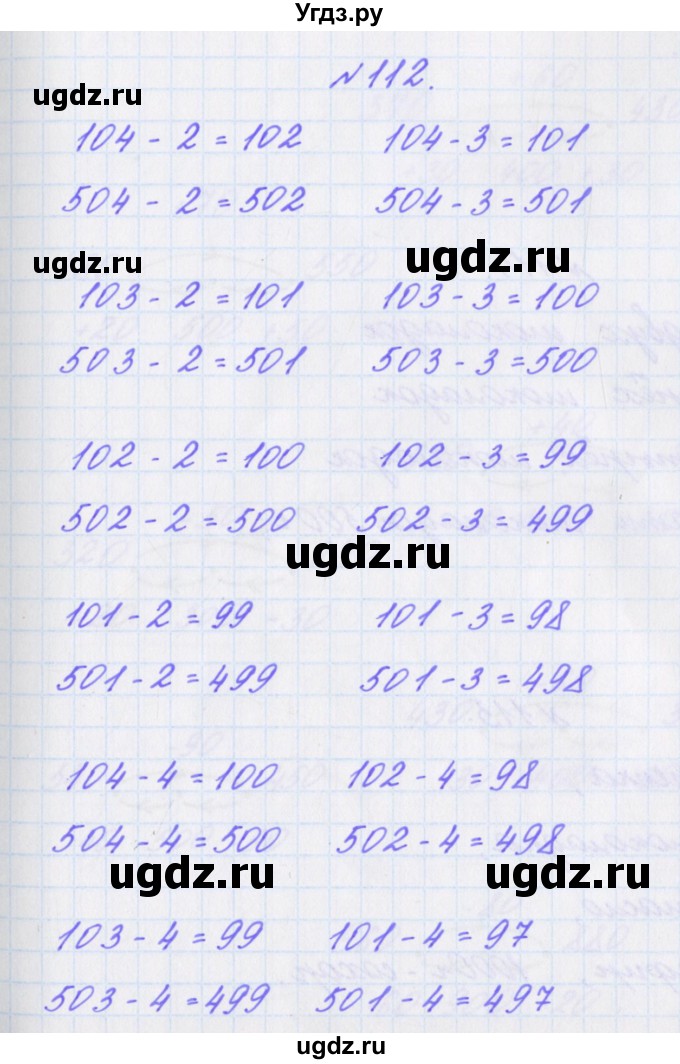 Угдз.ру
№112.
ugdz.ru
104 - 2 = 102 104 - 3 = 101
504 - 2 = 502 504 - 3 = 501
ugdz.ru ugdz.ru
103 - 2 = 101 103 - 3 = 100
503 - 2 = 501 503 - 3 = 500
102 - 2 = 100 102 - 3 = 99
502 - 2 = 500 502 - 3 = 499
ugdz.ru
101 - 2 = 99 101 - 3 = 98
501 - 2 = 499 501 - 3 = 498
104 - 4 = 100 102 - 4 = 98
504 - 4 = 500 502 - 4 = 498
ugdz.ru ugdz.ru
103 - 4 = 99 101 - 4 = 97
503 - 4 = 499 501 - 4 = 497
ugdz.ru